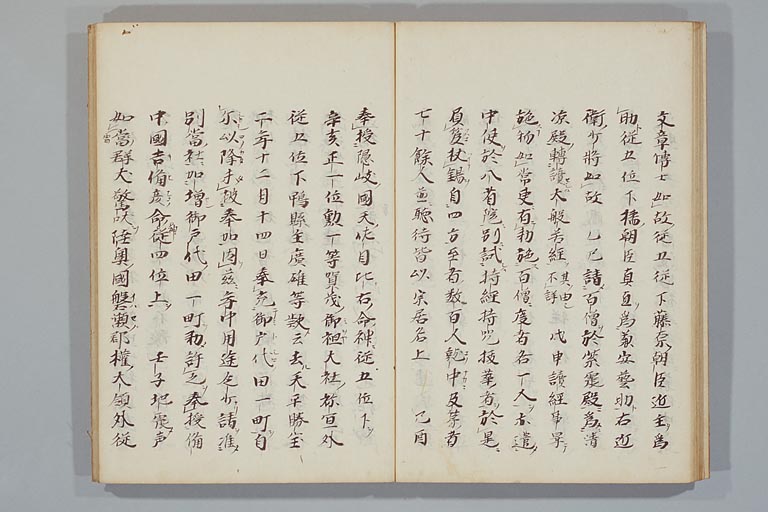 文章博士如故從五位下藤原朝臣近主爲
助從五位下橘朝臣真直爲兼安藝助右近
衛少將如故　乙巳諸百僧於紫宸殿爲清
凉殿轉讀大般若經其由不詳戊申讀經事畢
施物如常更有勅施百僧度者各一人亦遣
中使於八省院別試持經持咒拔萃者於是
負笈杖錫自四方至者數百人就中及第者
七十餘人並聽待皆以宗居名上　己酉
奉授隱岐國天佐自比右命神從五位下
辛亥正一位勲一等賀茂御祖大社祢亘外
從五位下鴨縣主廣雄等欵云去天平勝宝
二年十二月十四日奉充御戸代田一町自
尓以降未被奉加因茲年中用途乏少諸准
別當社加増御戸代田一町勅許之奉授備
中國吉備彦命神從四位上　壬子地震声
如雷群犬驚吠陸奥國磐瀬郡權大領外從